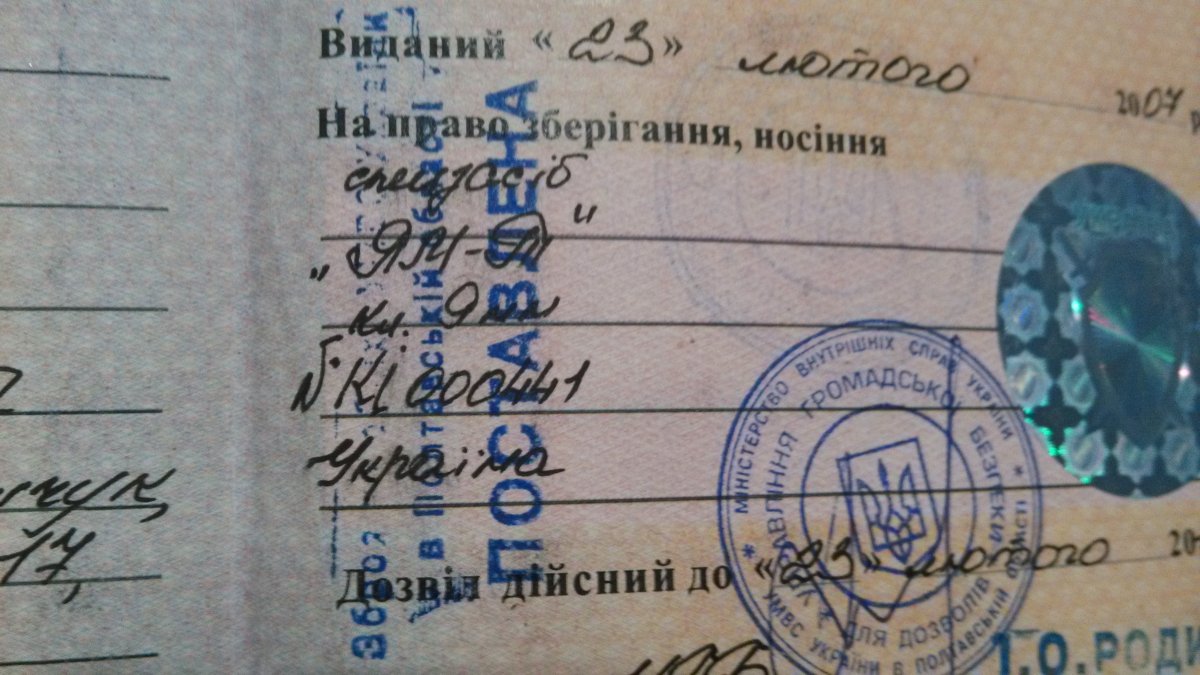 Виданий « 23 » лютого 2007 р
На право зберігання, носіння
спецзасіб
„ ЯМ-Т "
кл. 9мм
№ КІ 000441
Україна
Дозвіл дійсний до « 23 » лютого 20
17,
в Полтавській області
ПОСТАВЛЕНА
МІНІСТЕРСТВО ВНУТРІШНІХ СПРАВ УКРАЇНИ * УМВС УКРАЇНИ В ПОЛТАВСЬКІЙ ОБЛАСТІ *
УПРАВЛІННЯ ГРОМАДСЬКОЇ БЕЗПЕКИ
ДЛЯ ДОЗВОЛІВ
Т.О.РОДИ